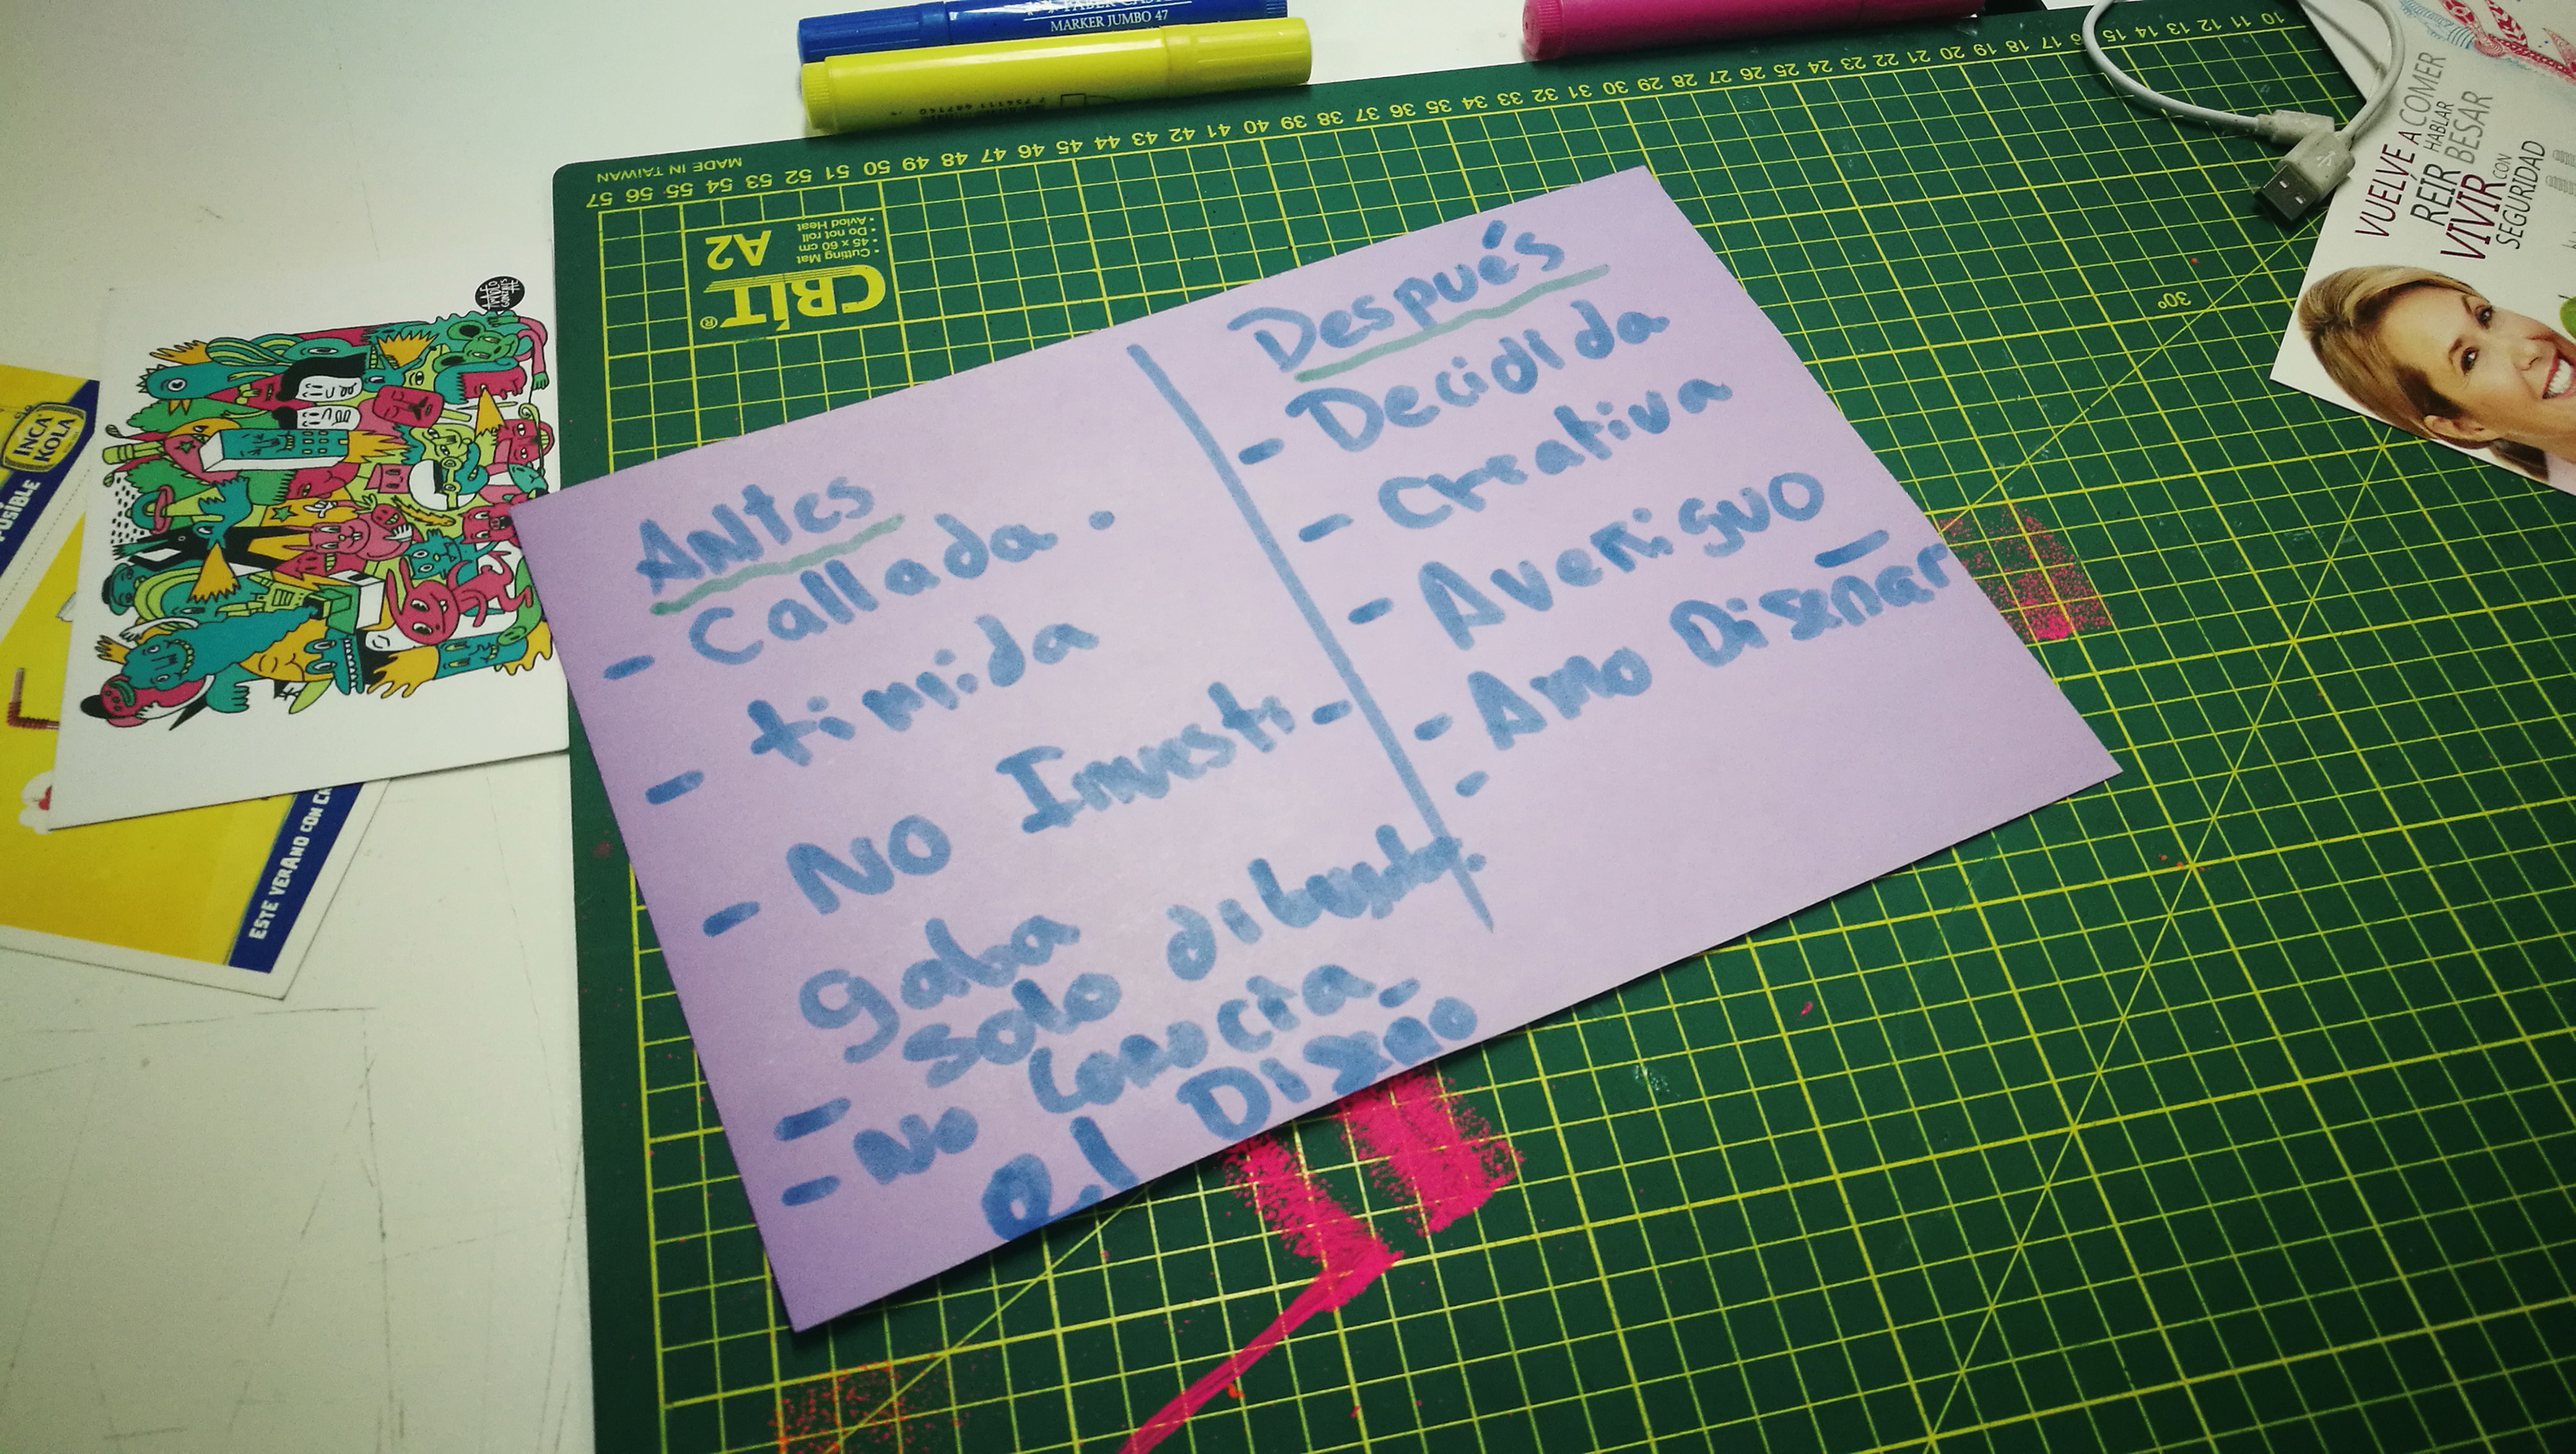 FABER CASTELL
MARKER JUMBO 47
10 11 12 13 14 15 16 17 18 19 20 21 22 23 24 25 26 27 28 29 30 31 32 33 34 35 36 37 38 39 40 41 42 43 44 45 46 47 48 49 50 51 52 53 54 55 56 57
MADE IN TAIWAN
CBIT®
A2
• Cutting Mat
• 45 x 60 cm
• Do not roll
• Aviod Heat
30º
Antes
- Callada.
- timida
- NO Investi-
gaba
- solo dibujaba.
- No conocia
el Diseño
Después
- Decidida
- Creativa
- Averiguo
- Amo Diseñar
-
INCA
KOLA
POSIBLE
ESTE VERANO CON
VUELVE A COMER
HABLAR
REÍR BESAR
VIVIR CON
SEGURIDAD